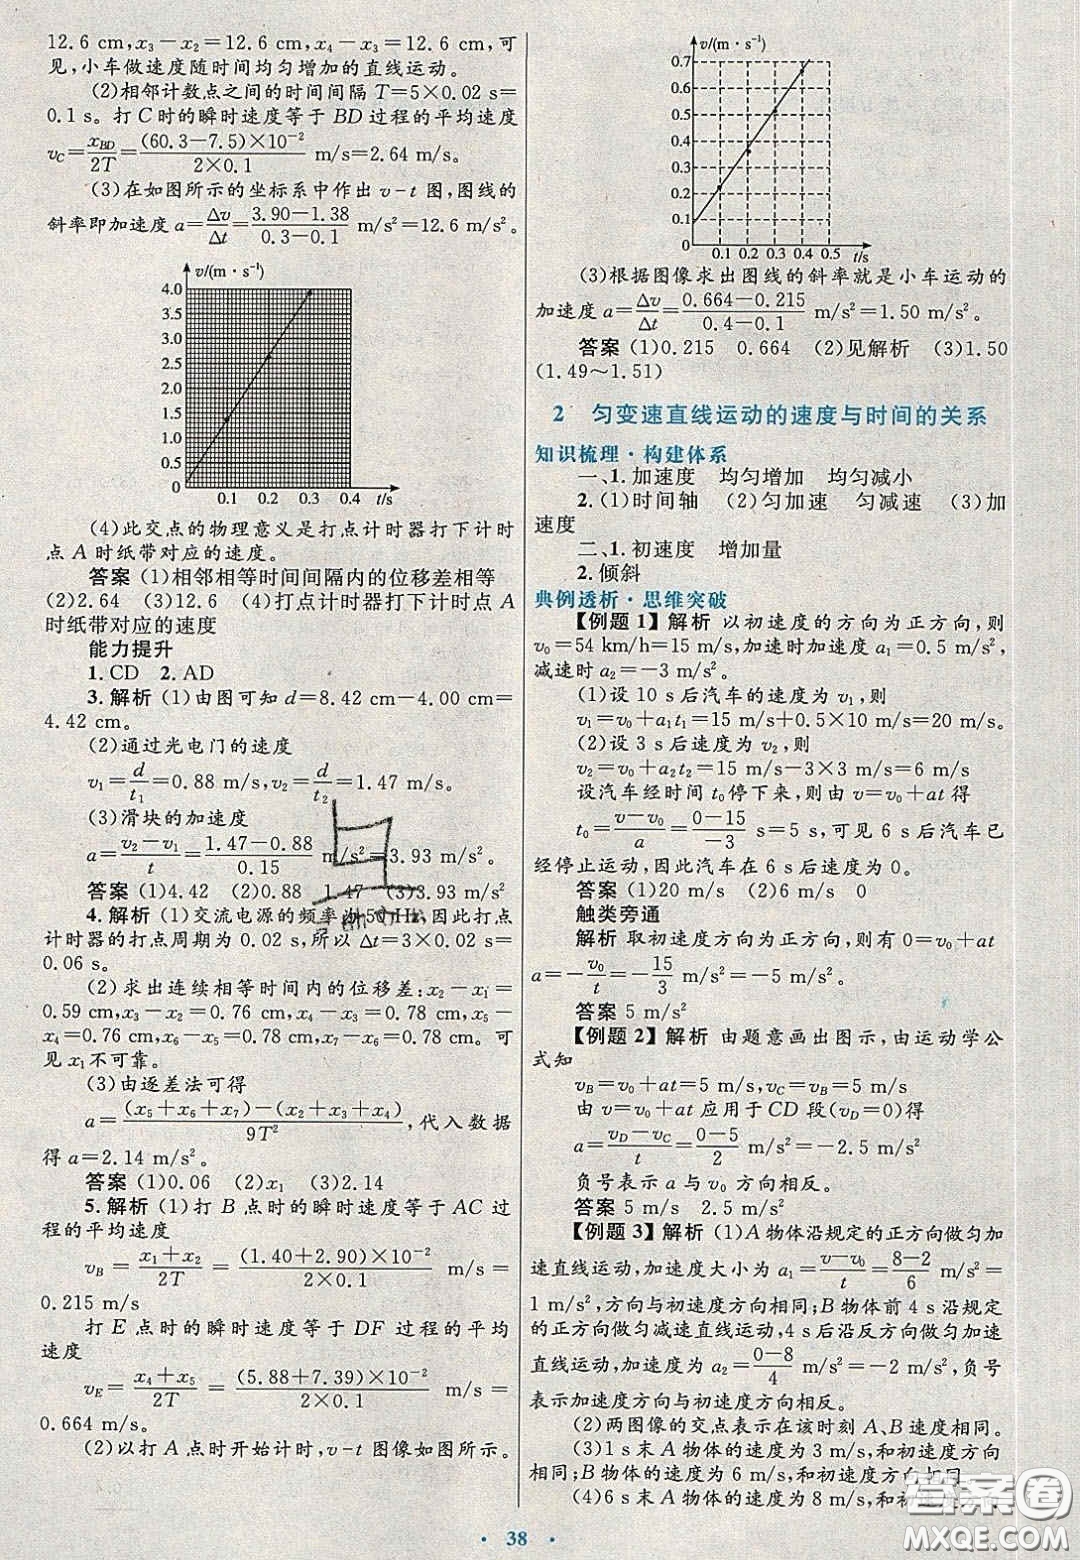 12.6 cm,x₃−x₂=12.6 cm,x₄−x₃=12.6 cm,可
见,小车做速度随时间均匀增加的直线运动。
(2)相邻计数点之间的时间间隔 T=5×0.02 s=
0.1 s。打 C 时的瞬时速度等于 BD 过程的平均速度
v_C=x_BD/2T=(60.3−7.5)×10⁻²/(2×0.1) m/s=2.64 m/s。
(3)在如图所示的坐标系中作出 v-t 图,图线的
斜率即加速度 a=Δv/Δt=(3.90−1.38)/(0.3−0.1) m/s²=12.6 m/s²。
v/(m·s⁻¹)
4.0
3.5
3.0
2.5
2.0
1.5
1.0
0.5
0 0.1 0.2 0.3 0.4 t/s
(4)此交点的物理意义是打点计时器打下计时
点 A 时纸带对应的速度。
答案 (1)相邻相等时间间隔内的位移差相等
(2)2.64 (3)12.6 (4)打点计时器打下计时点 A
时纸带对应的速度
能力提升
1.CD 2.AD
3.解析 (1)由图可知 d=8.42 cm−4.00 cm=
4.42 cm。
(2)通过光电门的速度
v₁=d/t₁=0.88 m/s,v₂=d/t₂=1.47 m/s。
(3)滑块的加速度
a=(v₂−v₁)/t=(1.47−0.88)/0.15 m/s²=3.93 m/s²。
答案 (1)4.42 (2)0.88 1.47 (3)3.93 m/s²
4.解析 (1)交流电源的频率为 50 Hz,因此打点
计时器的打点周期为 0.02 s,所以 Δt=3×0.02 s=
0.06 s。
(2)求出连续相等时间内的位移差:x₂−x₁=
0.59 cm,x₃−x₂=0.76 cm,x₄−x₃=0.78 cm,x₅−
x₄=0.76 cm,x₆−x₅=0.78 cm,x₇−x₆=0.78 cm。可
见 x₁不可靠。
(3)由逐差法可得
a=((x₅+x₆+x₇)−(x₂+x₃+x₄))/9T²,代入数据
得 a=2.14 m/s²。
答案 (1)0.06 (2)x₁ (3)2.14
5.解析 (1)打 B 点时的瞬时速度等于 AC 过
程的平均速度
v_B=(x₁+x₂)/2T=(1.40+2.90)×10⁻²/(2×0.1) m/s=
0.215 m/s
打 E 点时的瞬时速度等于 DF 过程的平均
速度
v_E=(x₄+x₅)/2T=(5.88+7.39)×10⁻²/(2×0.1) m/s=
0.664 m/s。
(2)以打 A 点时开始计时,v-t 图像如图所示。
v/(m·s⁻¹)
0.7
0.6
0.5
0.4
0.3
0.2
0.1
0 0.1 0.2 0.3 0.4 0.5 t/s
(3)根据图像求出图线的斜率就是小车运动的
加速度 a=Δv/Δt=(0.664−0.215)/(0.4−0.1) m/s²=1.50 m/s²。
答案 (1)0.215 0.664 (2)见解析 (3)1.50
(1.49～1.51)
2 匀变速直线运动的速度与时间的关系
知识梳理·构建体系
一、1.加速度 均匀增加 均匀减小
2.(1)时间轴 (2)匀加速 匀减速 (3)加
速度
二、1.初速度 增加量
2.倾斜
典例透析·思维突破
【例题1】解析 以初速度的方向为正方向,则
v₀=54 km/h=15 m/s,加速时加速度 a₁=0.5 m/s²,
减速时 a₂=−3 m/s²。
(1)设 10 s 后汽车的速度为 v₁,则
v₁=v₀+a₁t₁=15 m/s+0.5×10 m/s=20 m/s。
(2)设 3 s 后速度为 v₂,则
v₂=v₀+a₂t₂=15 m/s−3×3 m/s=6 m/s
设汽车经时间 t₀停下来,则由 v=v₀+at 得
t₀=(v−v₀)/a=(0−15)/−3 s=5 s,可见 6 s 后汽车已
经停止运动,因此汽车在 6 s 后速度为 0。
答案 (1)20 m/s (2)6 m/s 0
触类旁通
解析 取初速度方向为正方向,则有 0=v₀+at
a=−v₀/t=−15/3 m/s²=−5 m/s²。
答案 5 m/s²
【例题2】解析 由题意画出图示,由运动学公
式知
v_B=v₀+at=5 m/s,v_C=v_B=5 m/s
由 v=v₀+at 应用于 CD 段(v_D=0)得
a=(v_D−v_C)/t=(0−5)/2 m/s²=−2.5 m/s²
负号表示 a 与 v₀ 方向相反。
答案 5 m/s 2.5 m/s²
【例题3】解析 (1)A 物体沿规定的正方向做匀加
速直线运动,加速度大小为 a₁=(v−v₀)/t=(8−2)/6 m/s²=
1 m/s²,方向与初速度方向相同;B 物体前 4 s 沿规定
的正方向做匀减速直线运动,4 s 后沿反方向做匀加速
直线运动,加速度为 a₂=(0−8)/4 m/s²=−2 m/s²,负号
表示加速度方向与初速度方向相反。
(2)两图像的交点表示在该时刻 A、B 速度相同。
(3)1 s 末 A 物体的速度为 3 m/s,和初速度方向
相同;B 物体的速度为 6 m/s,和初速度方向相同。
(4)6 s 末 A 物体的速度为 8 m/s,和初速度
· 38 ·
答案圈
MXQE.COM